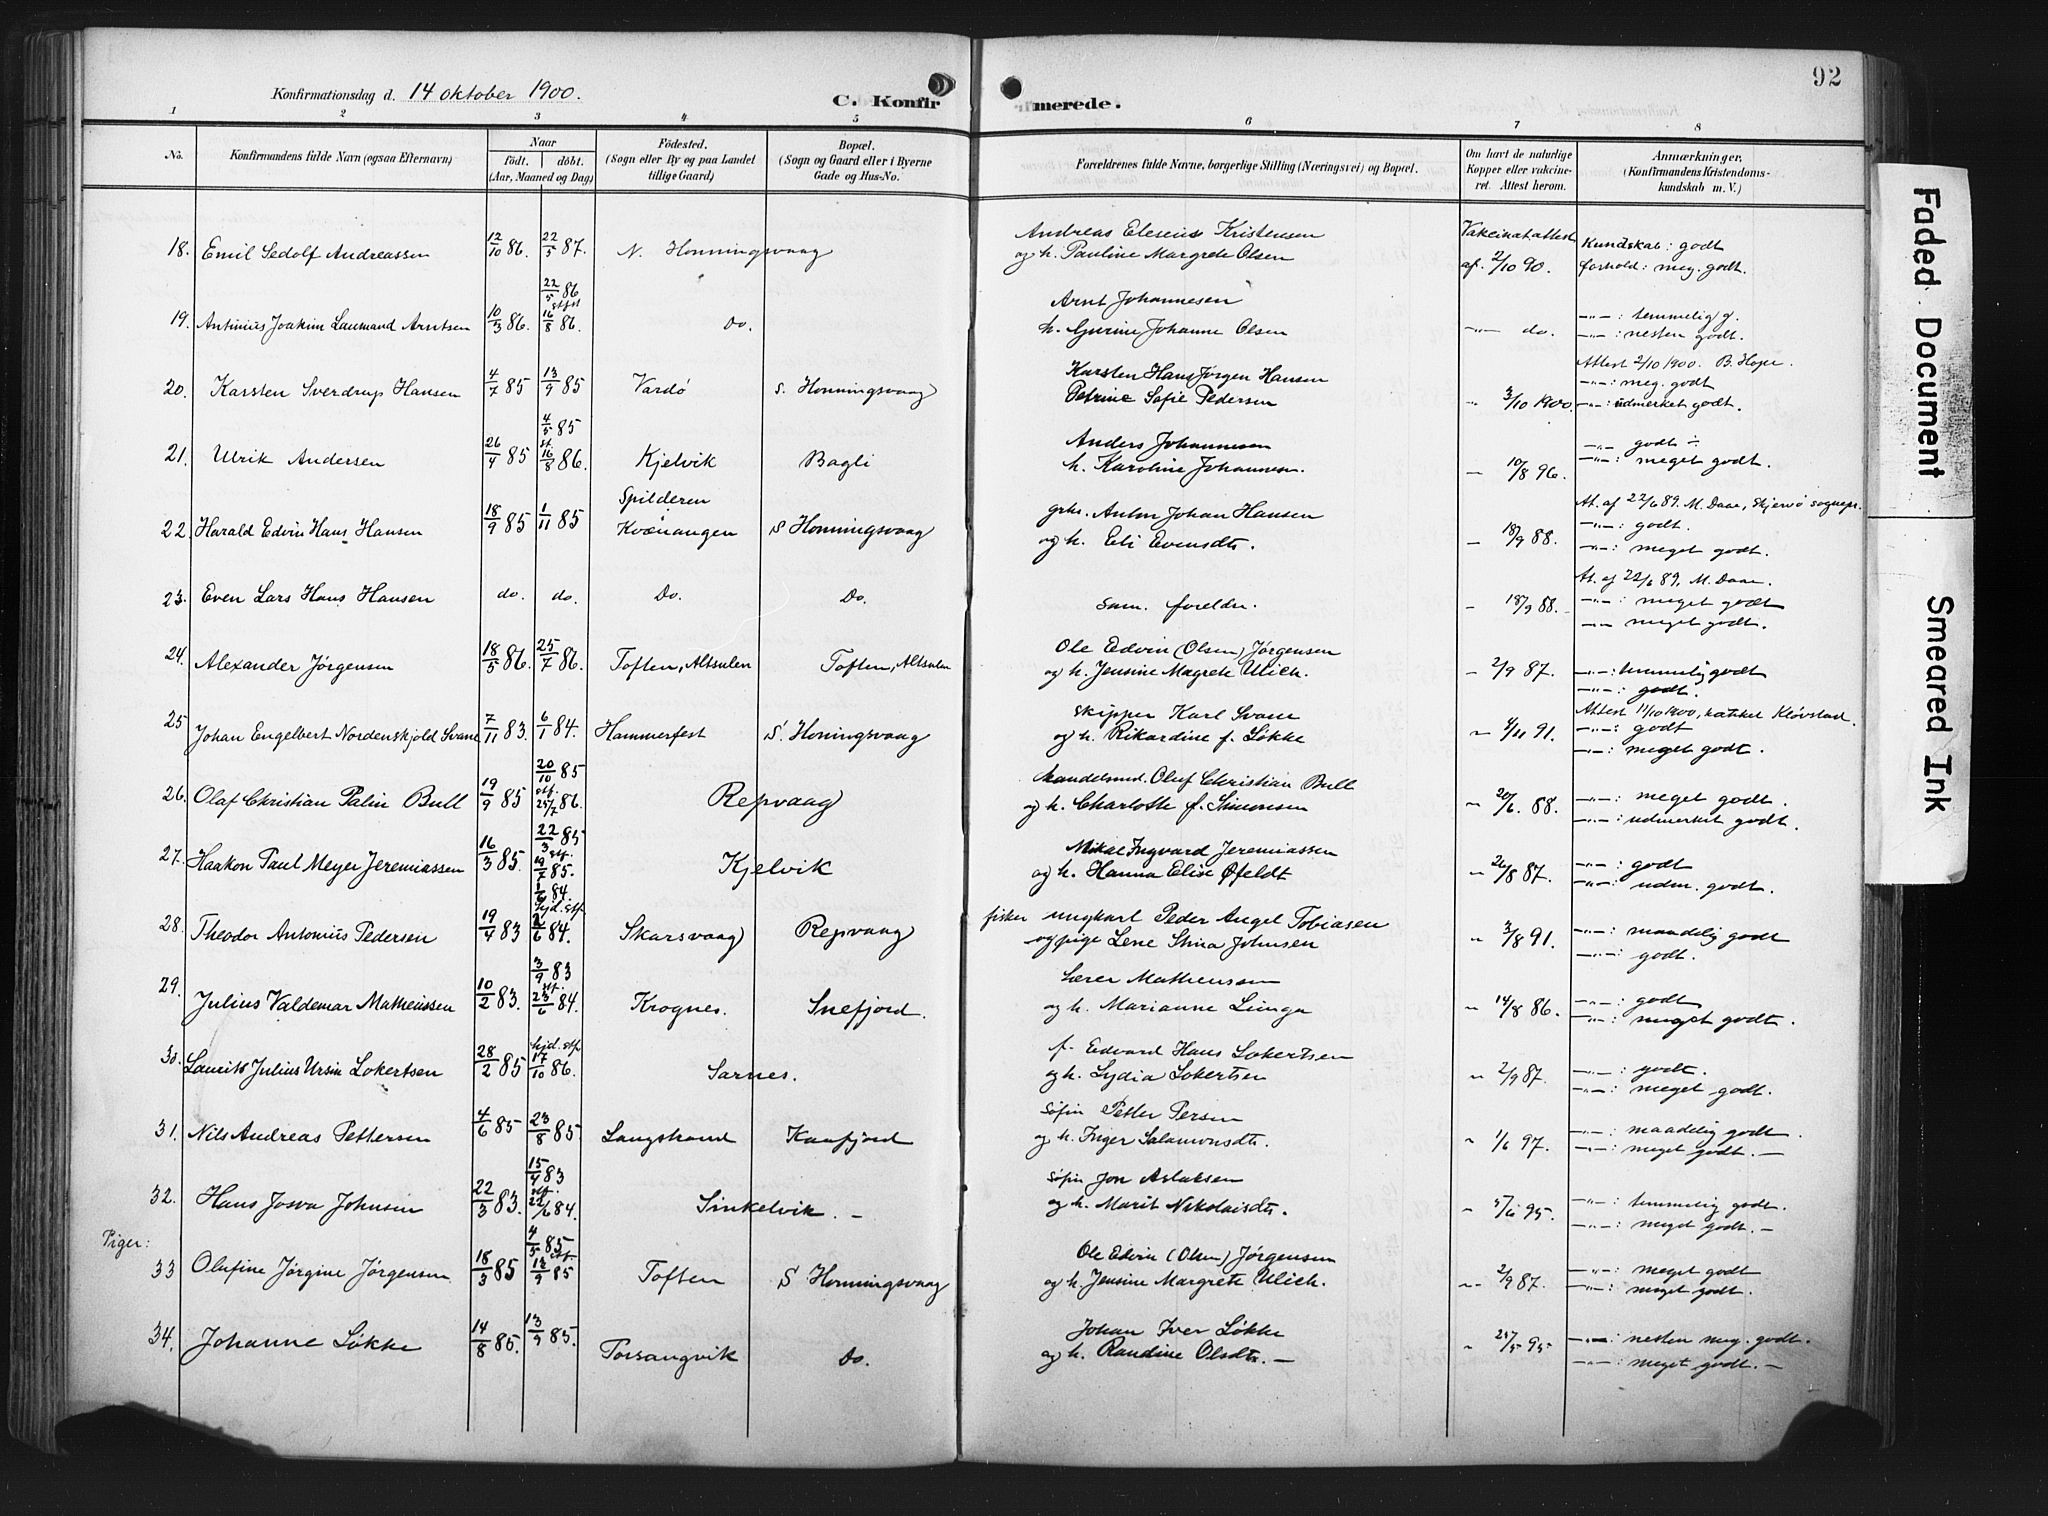 92
Konfirmationsdag d. 14 oktober 1900.
C. Konfirmerede.
1 2 3 4 5 6 7 8
No.
Konfirmandens fulde Navn (ogsaa Efternavn)
Naar
födt. döbt.
(Aar, Maaned og Dag)
Födested.
(Sogn eller By og paa Landet
tillige Gaard)
Bopæl.
(Sogn og Gaard eller i Byerne
Gade og Hus-No.
Forældrenes fulde Navne, borgerlige Stilling (Næringsvei) og Bopæl.
Om havt de naturlige
Kopper eller vakcine-
ret. Attest herom.
Anmærkninger.
(Konfirmandens Kristendoms-
kundskab m. V.)
18. Emil Sedolf Andreassen 12/10 86. 22/5 87. N. Honningsvaag
Andreas Eleseus Kristensen
og h. Pauline Margrete Olsen
Vakcinat.attest
af. 2/10 90.
Kundskab: godt
forhold: meg. godt.
19. Antinius Joakim Laumand Arntsen 10/3 86. 22/5 86 stfst 16/8 86. Do.
Arnt Johannesen
h. Gurine Johanne Olsen
-"- do.
-"-: temmelig g.
-"-: nesten godt.
20. Karsten Sverdrup Hansen 4/7 85 13/9 85 Vardö S. Honningsvaag
Karsten Hans Jörgen Hansen
Petrine Sofie Pedersen
" 3/10 1900.
Attest 2/10 1900. B. Hope.
-"-: meg. godt
-"-: udmerket godt.
21. Ulrik Andersen 26/4 85 4/5 85 st. 16/8 86. Kjelvik Bagli
Anders Johannesen
h. Karoline Johannesn.
- 10/8 96.
-"- godt
-"-: meget godt.
22. Harald Edvin Hans Hansen 18/9 85 1/11 85 Spilderen
Kvænangen S Honningsvaag
grhr. Anton Johan Hansen
og h. Eli Evensdtr.
- 18/9 88.
At. af 22/6 89. M. Daae, Skjervö sognepr.
-"-: godt.
-"-: meget godt.
23. Even Lars Hans Hansen do. do. Do. Do.
Sam. foreldre.
- 18/9 88.
At. af 22/6 89. M. Daae.
-"-: meget godt
-"- meget godt.
24. Alexander Jörgensen 18/5 86. 25/7 86. Toften, Altsulen Toften, Altsulen
Ole Edvin (Olsen) Jörgensen
og h. Jensine Magrete Ulich.
- 2/9 87.
-"-: temmelig godt
-"-: godt.
25 Johan Engelbert Nordenskjold Svane 7/11 83. 6/1 84. Hammerfest S. Honingsvaag
Skipper Karl Svane
og h. Rikardine f. Lökke
" 4/11 91.
Attest 11/10 1900, katiket Klövstad.
-"-: godt
-"-: meget godt.
26. Olaf Christian Palin Bull 19/9 85 20/10 85 stf. 25/7 86. Repvaag
Handelsmd. Oluf Christian Bull
og h. Charlotte f. Simonsen
" 20/6. 88.
-"-: meget godt.
-"-: udmerket godt.
27. Haakon Paul Meyer Jeremiassen 16/3 85. 22/3 85 stf. 19/7 85. Kjelvik
Mikal Ingvard Jeremiassen
og h. Hanna Elise Öfeldt
" 26/8 87.
-"-: godt
-"-: udm. godt.
28. Theodor Antonius Pedersen 19/4 83 1/6 84. hjd. stf. 2/6 84. Skarsvaag Repvaag
fisker ungkarl Peder Angel Tobiasen
og pige Lene Stina Johnsen
" 3/8 91.
-"-: maadelig godt
-"-: godt.
29. Julius Valdemar Matheussen 10/2 83. 3/9 83 stf. 23/6 84. Krognes. Snefjord.
Lærer Matheussen
og h. Marianne Lunga
" 14/8 86.
-"-: godt
-"-: meget godt.
30. Laurits Julius Ursin Lokertsen 28/2 85 hjd. stf 17/10 86. Sarnes.
f. Edvard Hans Lokertsen
og h. Lydia Lokertsen
" 2/9 87.
-"-: godt.
-"-: meget godt.
31. Nils Andreas Pettersen 4/6 85 23/8 85. Langstrand Kaafjord
Söfin Petter Persen
og h. Inger Salamonsdtr.
" 1/6 97.
-"-: maadelig godt.
-"-: meget godt. -
32. Hans Josva Johnsen 22/3 83. 15/4 83 stf. 22/6 84. Sinkelvik. -
Söfin Jon Aslaksen
og h. Marit Nikolaisdtr.
" 5/6 95.
-"-: temmelig godt.
-"-: meget godt. -
Piger:
33 Olufine Jörgine Jörgensen 18/3 85 4/5 85 stf. 13/9 85 Toften S Honningsvaag
Ole Edvin (Olsen) Jörgensen
og h. Jensine Margrete Ulich.
" 2/9 87.
-"-: meget godt
-"-: meget godt.
34. Johanne Lökke 14/8 85. 13/9 85. Porsangvik Do.
Johan Iver Lökke
og h. Randine Olsdtr. -
" 25/5 95
-"-: nesten meg. godt.
-"-: meget godt. -
Faded Document
Smeared Ink